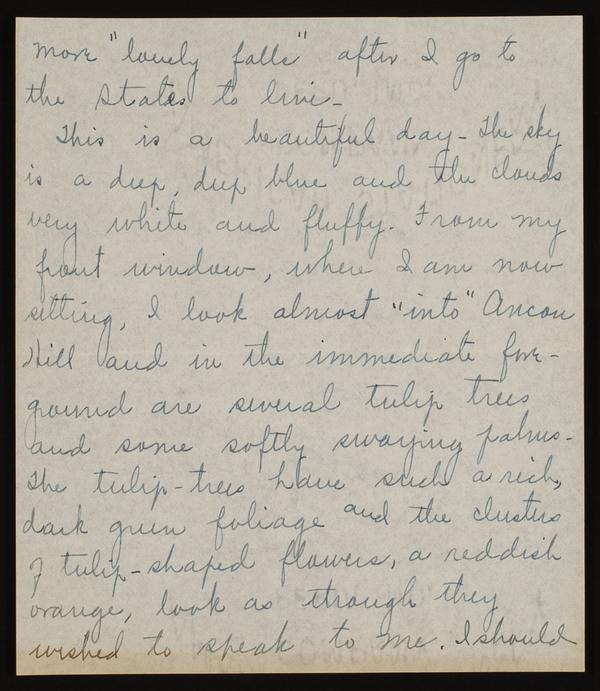 more "lovely falls" after I go to
the States to live-
This is a beautiful day- The sky
is a deep, deep blue and the clouds
very white and fluffy. From my
front window, where I am now
sitting, I look almost "into" Ancon
Hill and in the immediate fore-
ground are several tulip trees
and some softly swaying palms-
The tulip-trees have such a rich,
dark green foliage and the clusters
of tulip-shaped flowers, a reddish
orange, look as through they
wished to speak to me. I should